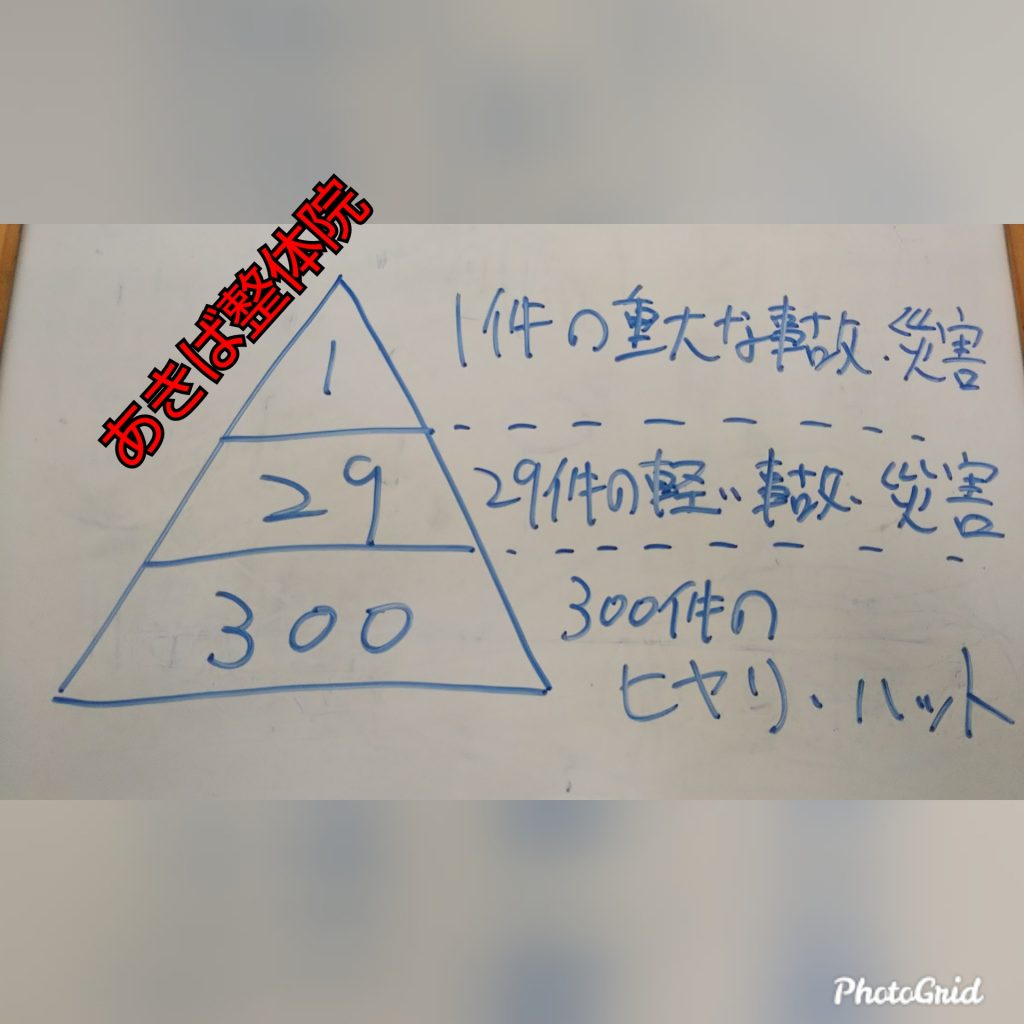 あきば整体院
1
1件の重大な事故・災害
29
29件の軽い事故・災害
300
300件の
ヒヤリ・ハット
PhotoGrid